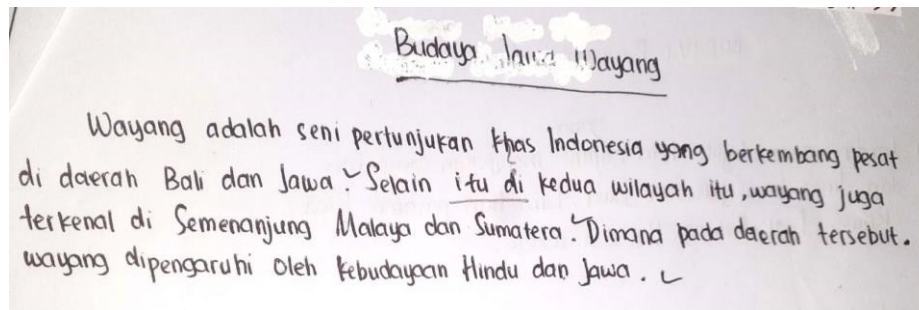 Budaya Jawa Wayang
Wayang adalah seni pertunjukan khas Indonesia yang berkembang pesat
di daerah Bali dan Jawa. Selain itu di kedua wilayah itu, wayang juga
terkenal di Semenanjung Malaya dan Sumatera. Dimana pada daerah tersebut.
wayang dipengaruhi oleh kebudayaan Hindu dan Jawa.